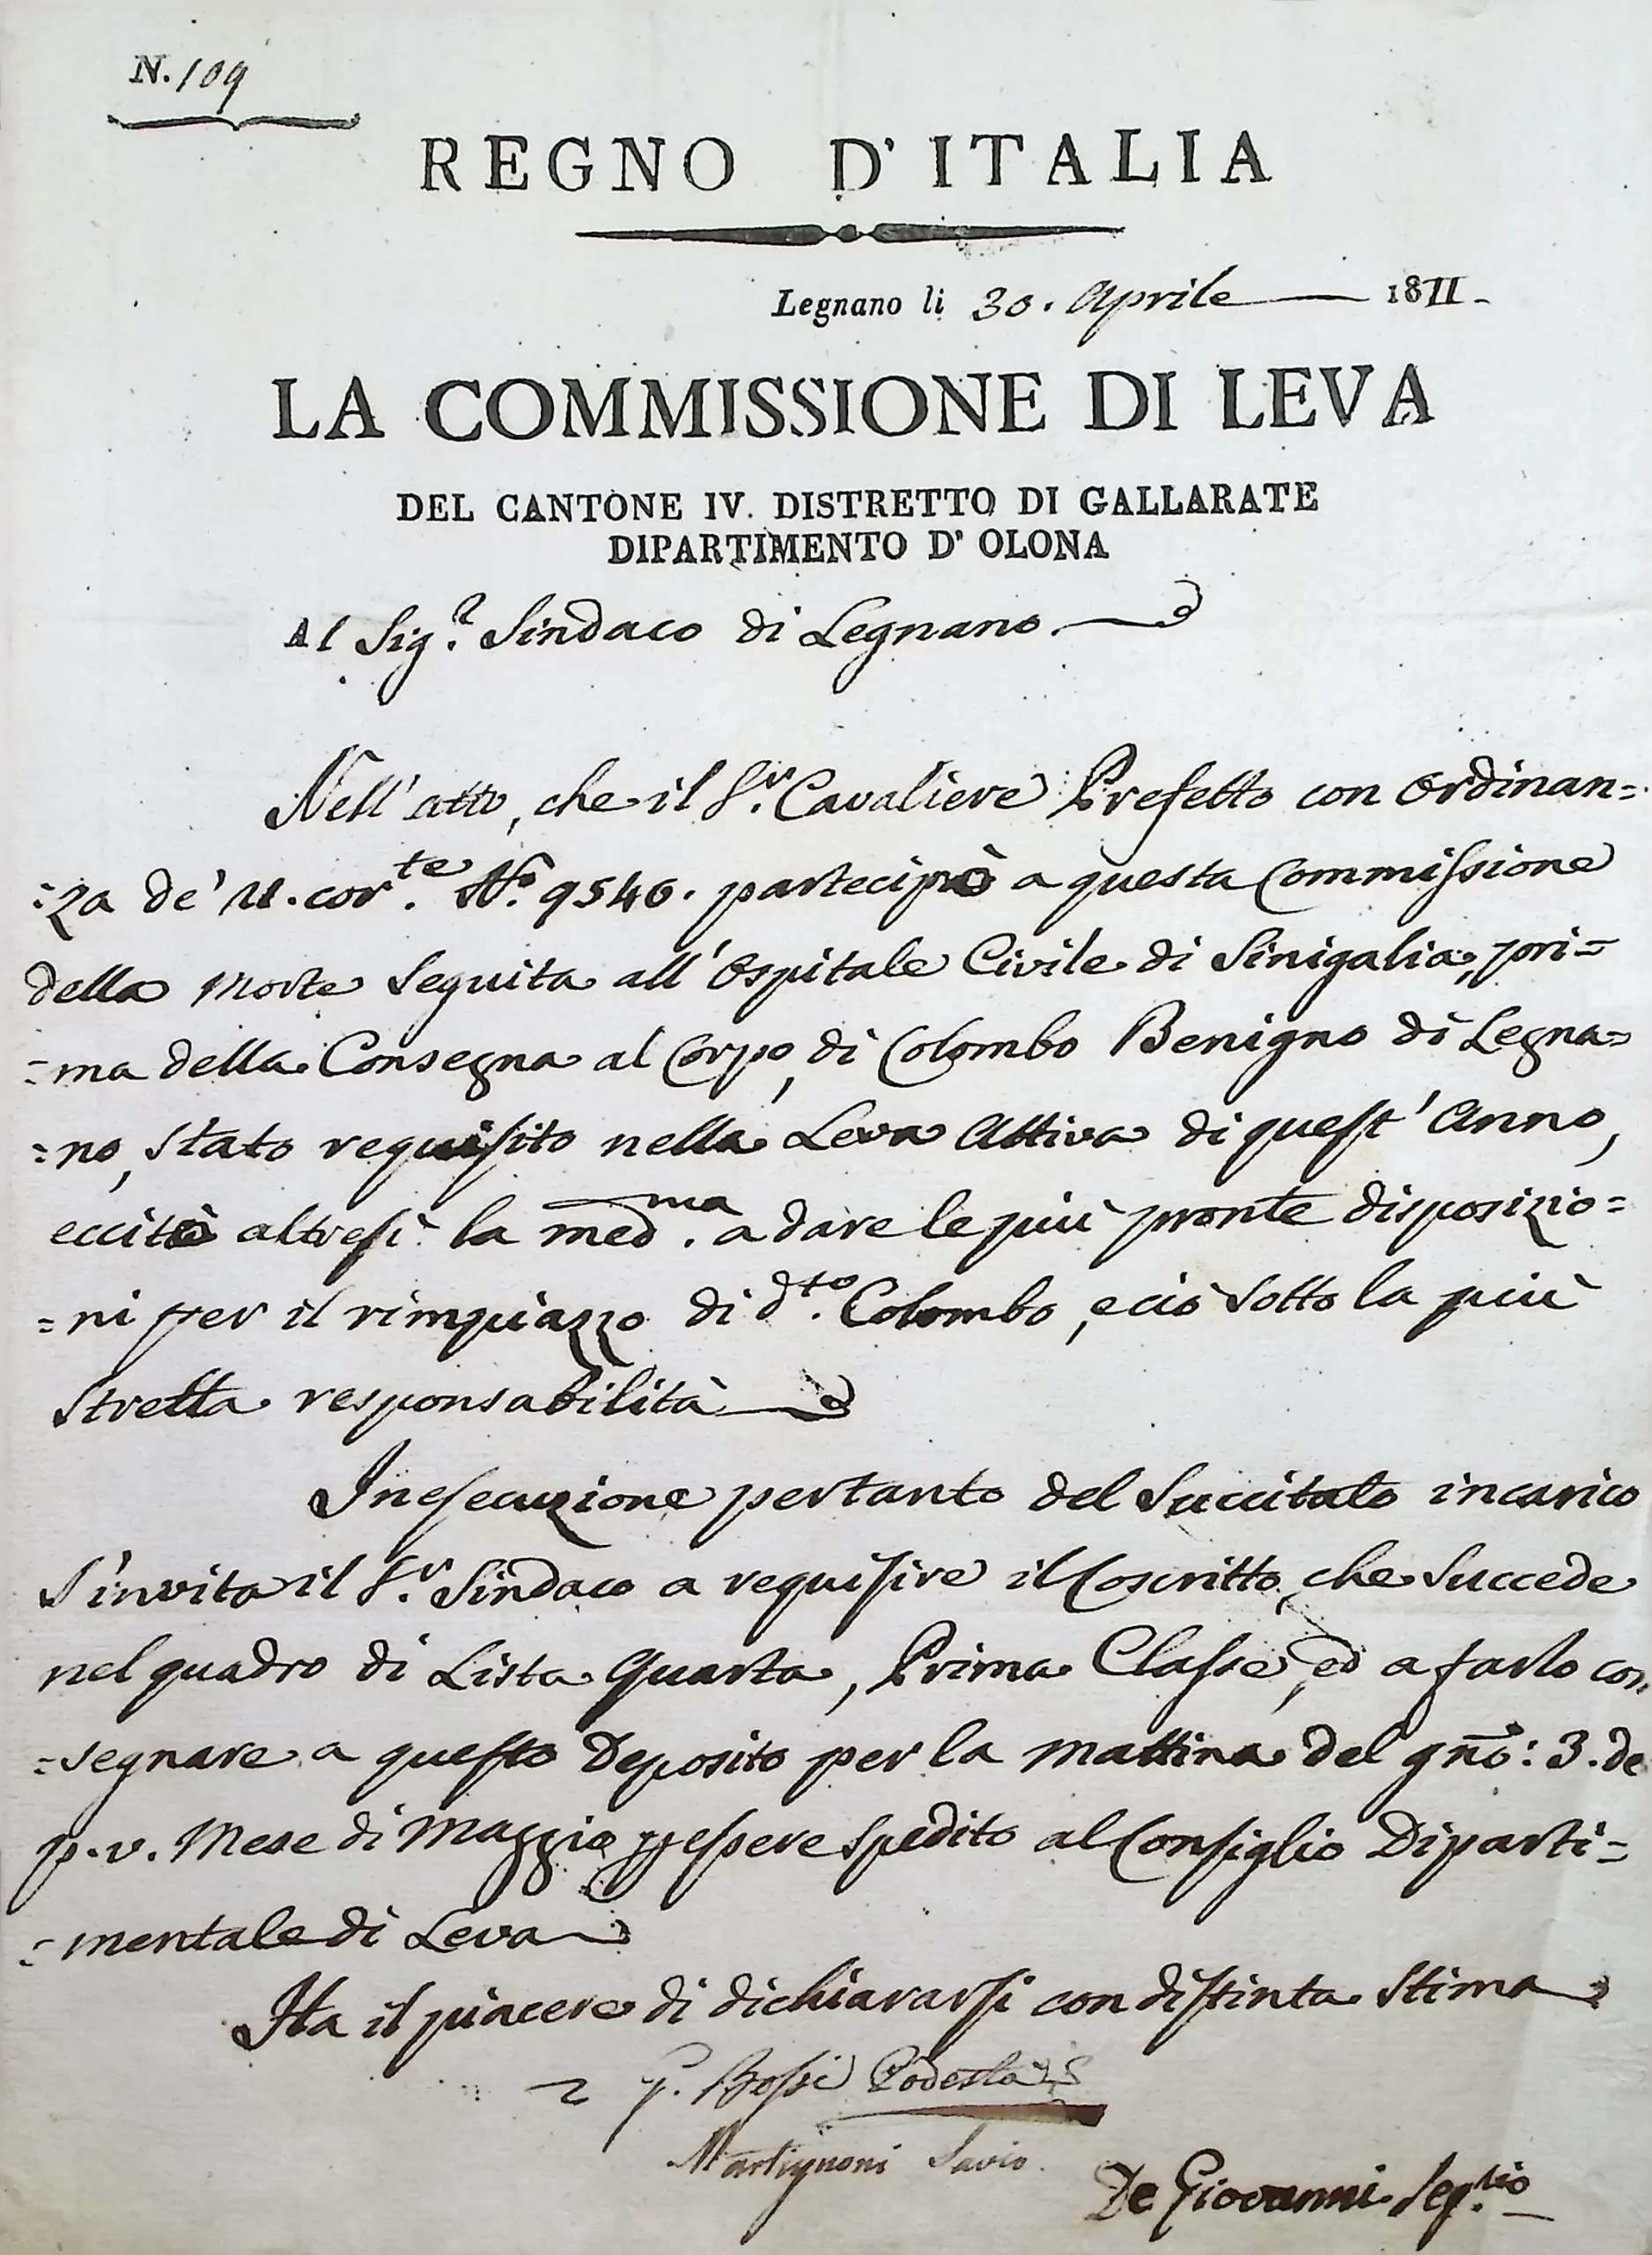 N. 109
REGNO D'ITALIA
Legnano li 30. Aprile 1811.
LA COMMISSIONE DI LEVA
DEL CANTONE IV. DISTRETTO DI GALLARATE
DIPARTIMENTO D' OLONA
Al Sig.r Sindaco di Legnano.
Nell'atto, che il S.r Cavaliere Prefetto con Ordinan=
=za de' 11. cor.te N.o 9546. partecipò a questa Commissione
della Morte Seguita all'Ospitale Civile di Sinigalia, pri=
=ma della Consegna al Corpo, di Colombo Benigno di Legna=
=no, Stato requisito nella Leva Attiva di quest'Anno,
eccitò altresì la med.ma a dare le più pronte disposizio=
=ni per il rimpiazzo di d.to Colombo, e ciò Sotto la più
Stretta responsabilità
In esecuzione pertanto del Succitato incarico
S'invita il S.r Sindaco a requisire il Coscritto, che Succede
nel quadro di Lista Quarta, Prima Classe, ed a farlo con
=segnare a questo Deposito per la mattina del gno: 3. de
p.v. Mese di Maggio p essere Spedito al Consiglio Diparti=
=mentale di Leva
Ha il piacere di dichiararsi con distinta Stima
G. Bossi Podestà
Martignoni Savio.
De Giovanni Seg.rio